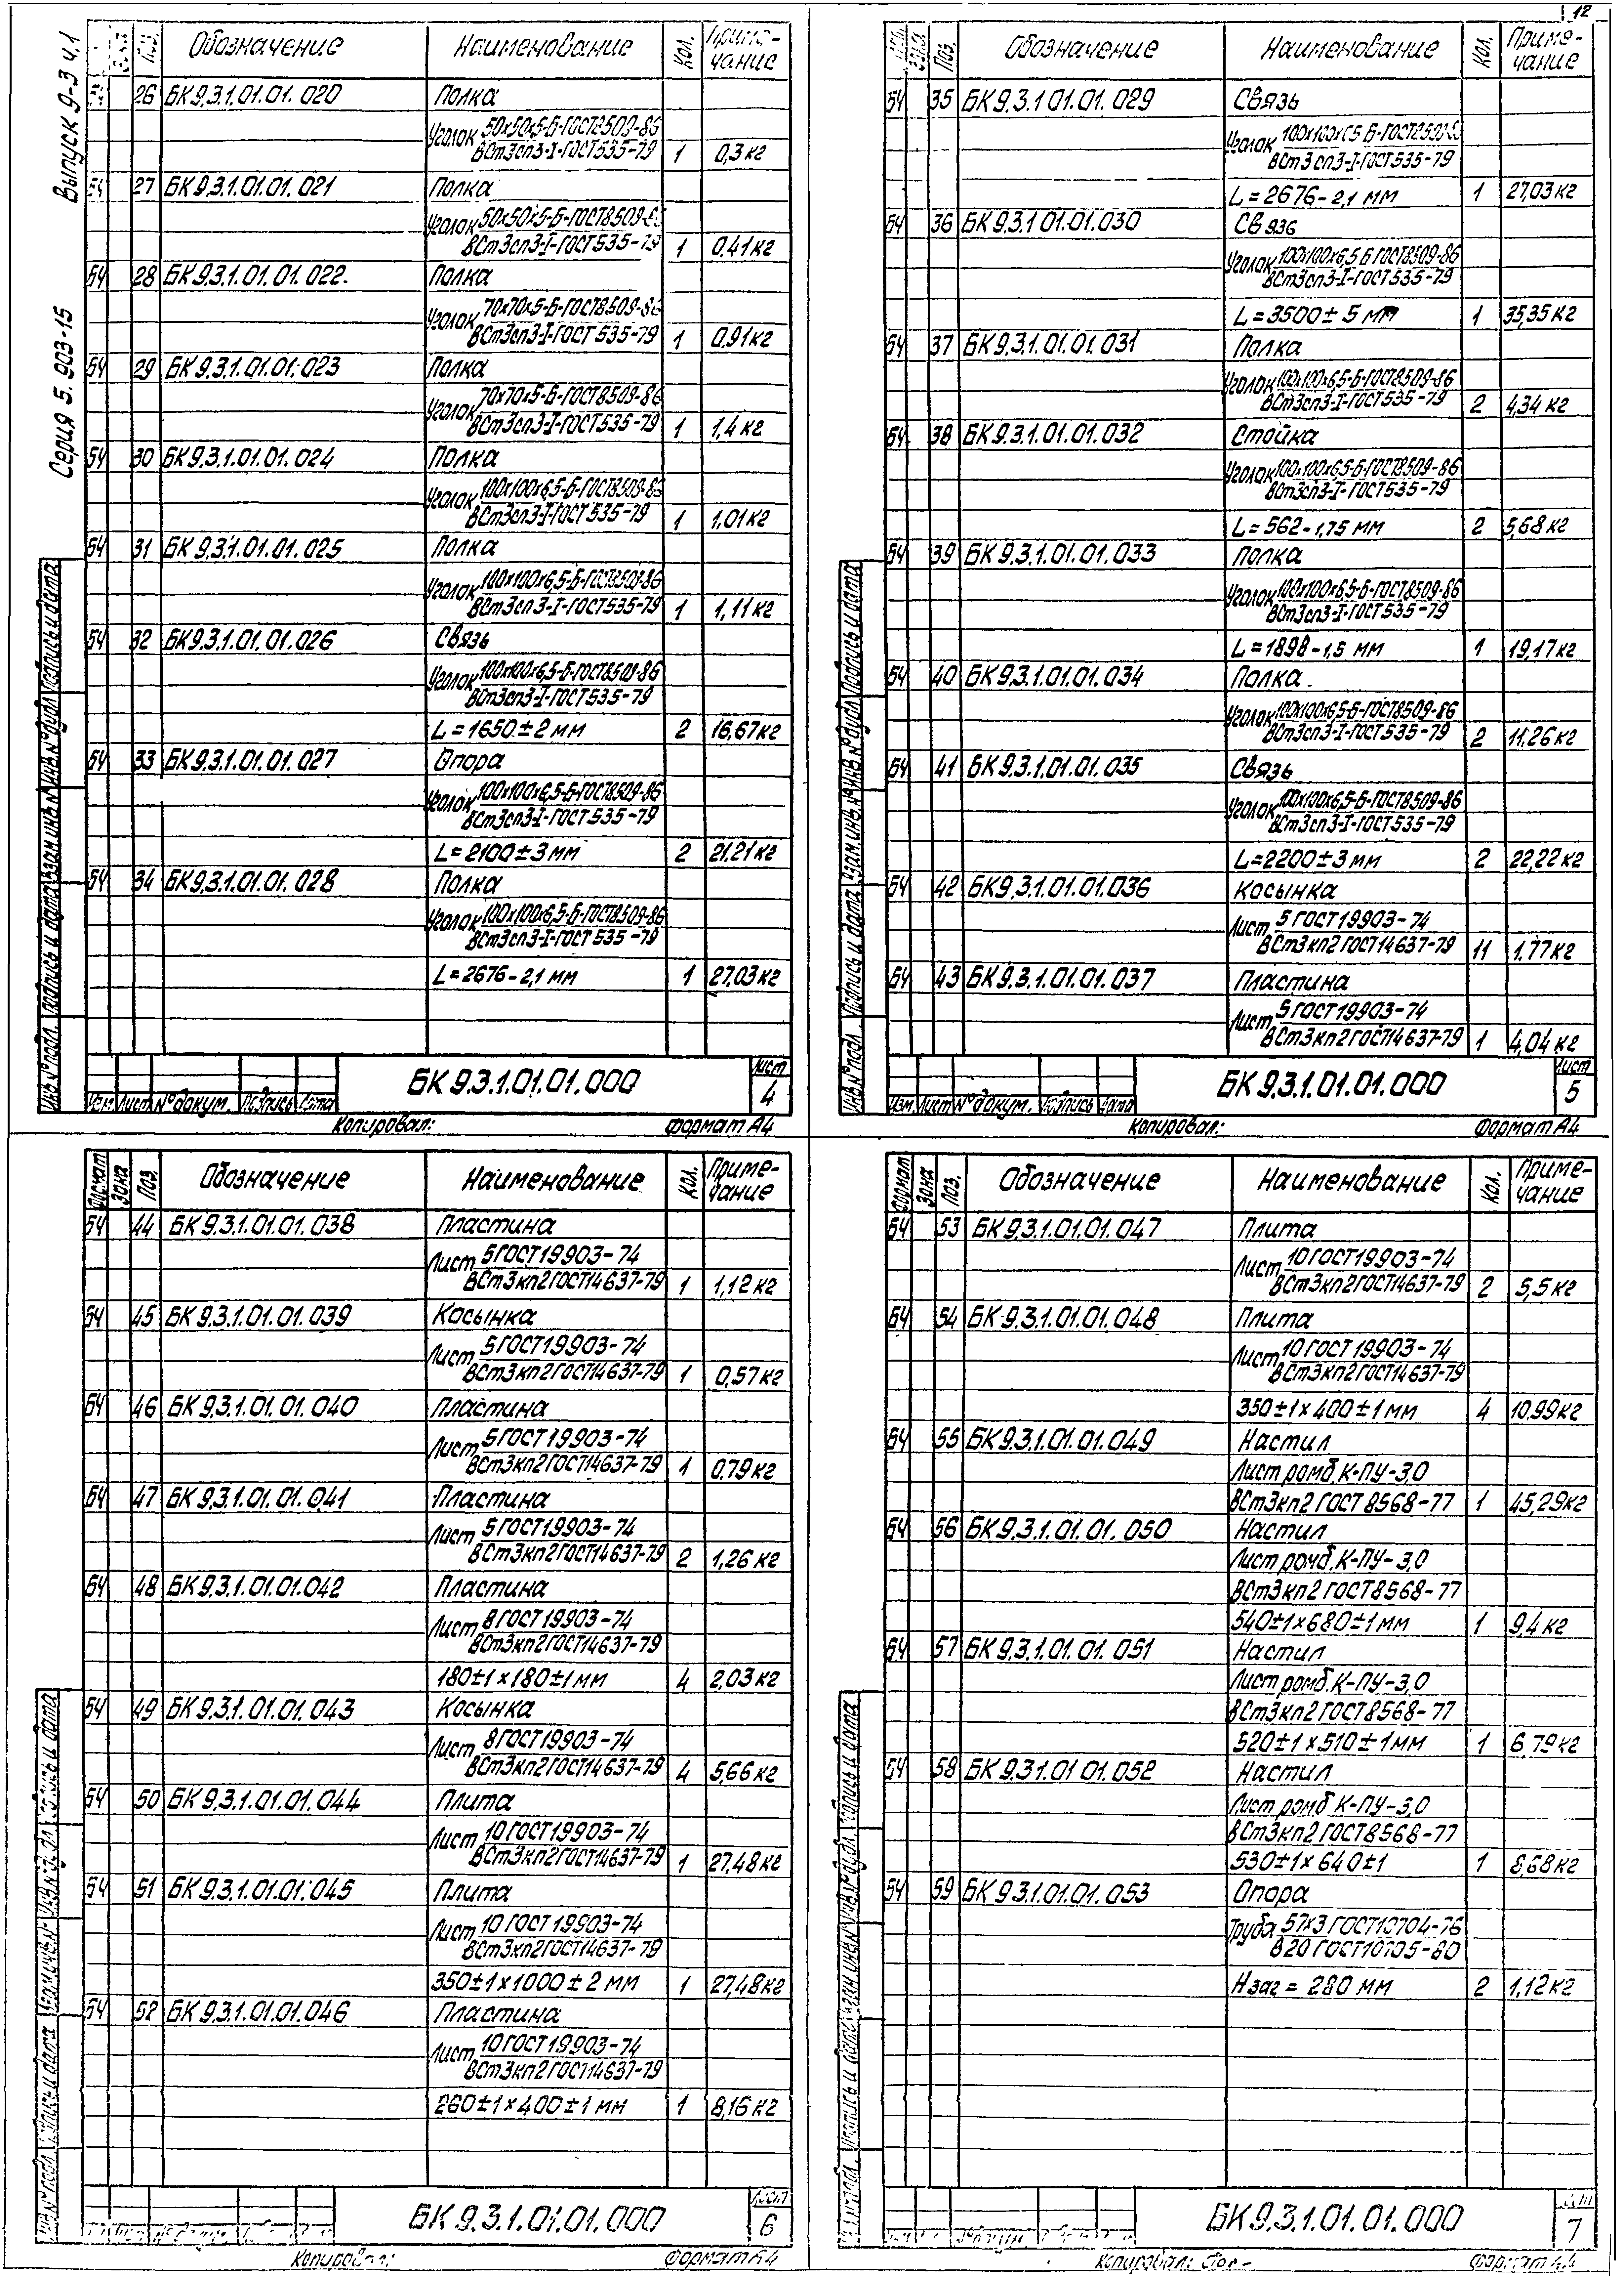 12
Серия 5.903-15 Выпуск 9-3 ч.1
Поз. Обозначение Наименование Кол. Приме-
чание
БЧ 26 БК 9.3.1.01.01.020 Полка
Уголок 50х50х5-Б-ГОСТ8509-86
ВСт3сп3-I-ГОСТ535-79 1 0,3 кг
БЧ 27 БК 9.3.1.01.01.021 Полка
Уголок 50х50х5-Б-ГОСТ8509-86
ВСт3сп3-I-ГОСТ535-79 1 0,41 кг
БЧ 28 БК 9.3.1.01.01.022 Полка
Уголок 70х70х5-Б-ГОСТ8509-86
ВСт3сп3-I-ГОСТ535-79 1 0,91 кг
БЧ 29 БК 9.3.1.01.01.023 Полка
Уголок 70х70х5-Б-ГОСТ8509-86
ВСт3сп3-I-ГОСТ535-79 1 1,4 кг
БЧ 30 БК 9.3.1.01.01.024 Полка
Уголок 100х100х6,5-Б-ГОСТ8509-86
ВСт3сп3-I-ГОСТ535-79 1 1,01 кг
БЧ 31 БК 9.3.1.01.01.025 Полка
Уголок 100х100х6,5-Б-ГОСТ8509-86
ВСт3сп3-I-ГОСТ535-79 1 1,11 кг
БЧ 32 БК 9.3.1.01.01.026 Связь
Уголок 100х100х6,5-Б-ГОСТ8509-86
ВСт3сп3-I-ГОСТ535-79
L = 1650 ± 2 мм 2 16,67 кг
БЧ 33 БК 9.3.1.01.01.027 Опора
Уголок 100х100х6,5-Б-ГОСТ8509-86
ВСт3сп3-I-ГОСТ535-79
L = 2100 ± 3 мм 2 21,21 кг
БЧ 34 БК 9.3.1.01.01.028 Полка
Уголок 100х100х6,5-Б-ГОСТ8509-86
ВСт3сп3-I-ГОСТ535-79
L = 2676 - 2,1 мм 1 27,03 кг
Инв.№ подл. Подпись и дата Взам.инв.№ Инв.№ дубл. Подпись и дата
Изм. Лист № докум. Подпись Дата БК 9.3.1.01.01.000 Лист
4
Копировал: Формат А4
Поз. Обозначение Наименование Кол. Приме-
чание
БЧ 35 БК 9.3.1.01.01.029 Связь
Уголок 100х100х6,5-Б-ГОСТ8509-86
ВСт3сп3-I-ГОСТ535-79
L = 2676 - 2,1 мм 1 27,03 кг
БЧ 36 БК 9.3.1.01.01.030 Связь
Уголок 100х100х6,5-Б ГОСТ8509-86
ВСт3сп3-I-ГОСТ535-79
L = 3500 ± 5 мм 1 35,35 кг
БЧ 37 БК 9.3.1.01.01.031 Полка
Уголок 100х100х6,5-Б-ГОСТ8509-86
ВСт3сп3-I-ГОСТ535-79 2 4,34 кг
БЧ 38 БК 9.3.1.01.01.032 Стойка
Уголок 100х100х6,5-Б-ГОСТ8509-86
ВСт3сп3-I-ГОСТ535-79
L = 562 - 1,75 мм 2 5,68 кг
БЧ 39 БК 9.3.1.01.01.033 Полка
Уголок 100х100х6,5-Б-ГОСТ8509-86
ВСт3сп3-I-ГОСТ535-79
L = 1898 - 1,5 мм 1 19,17 кг
БЧ 40 БК 9.3.1.01.01.034 Полка
Уголок 100х100х6,5-Б-ГОСТ8509-86
ВСт3сп3-I-ГОСТ535-79 2 11,26 кг
БЧ 41 БК 9.3.1.01.01.035 Связь
Уголок 100х100х6,5-Б-ГОСТ8509-86
ВСт3сп3-I-ГОСТ535-79
L = 2200 ± 3 мм 2 22,22 кг
БЧ 42 БК 9.3.1.01.01.036 Косынка
Лист 5 ГОСТ19903-74
ВСт3кп2 ГОСТ14637-79 11 1,77 кг
БЧ 43 БК 9.3.1.01.01.037 Пластина
Лист 5 ГОСТ19903-74
ВСт3кп2 ГОСТ14637-79 1 4,04 кг
Инв.№ подл. Подпись и дата Взам.инв.№ Инв.№ дубл. Подпись и дата
Изм. Лист № докум. Подпись Дата БК 9.3.1.01.01.000 Лист
5
Копировал: Формат А4
Формат Зона Поз. Обозначение Наименование Кол. Приме-
чание
БЧ 44 БК 9.3.1.01.01.038 Пластина
Лист 5 ГОСТ19903-74
ВСт3кп2 ГОСТ14637-79 1 1,12 кг
БЧ 45 БК 9.3.1.01.01.039 Косынка
Лист 5 ГОСТ19903-74
ВСт3кп2 ГОСТ14637-79 1 0,57 кг
БЧ 46 БК 9.3.1.01.01.040 Пластина
Лист 5 ГОСТ19903-74
ВСт3кп2 ГОСТ14637-79 1 0,79 кг
БЧ 47 БК 9.3.1.01.01.041 Пластина
Лист 5 ГОСТ19903-74
ВСт3кп2 ГОСТ14637-79 2 1,26 кг
БЧ 48 БК 9.3.1.01.01.042 Пластина
Лист 8 ГОСТ19903-74
ВСт3кп2 ГОСТ14637-79
180±1 х 180±1 мм 4 2,03 кг
БЧ 49 БК 9.3.1.01.01.043 Косынка
Лист 8 ГОСТ19903-74
ВСт3кп2 ГОСТ14637-79 4 5,66 кг
БЧ 50 БК 9.3.1.01.01.044 Плита
Лист 10 ГОСТ19903-74
ВСт3кп2 ГОСТ14637-79 1 27,48 кг
БЧ 51 БК 9.3.1.01.01.045 Плита
Лист 10 ГОСТ19903-74
ВСт3кп2 ГОСТ14637-79
350±1 х 1000±2 мм 1 27,48 кг
БЧ 52 БК 9.3.1.01.01.046 Пластина
Лист 10 ГОСТ19903-74
ВСт3кп2 ГОСТ14637-79
260±1 х 400±1 мм 1 8,16 кг
БК 9.3.1.01.01.000 Лист
6
Копировал: Формат А4
Формат Зона Поз. Обозначение Наименование Кол. Приме-
чание
БЧ 53 БК 9.3.1.01.01.047 Плита
Лист 10 ГОСТ19903-74
ВСт3кп2 ГОСТ14637-79 2 5,5 кг
БЧ 54 БК 9.3.1.01.01.048 Плита
Лист 10 ГОСТ19903-74
ВСт3кп2 ГОСТ14637-79
350±1 х 400±1 мм 4 10,99 кг
БЧ 55 БК 9.3.1.01.01.049 Настил
Лист ромб. К-ПУ-3,0
ВСт3кп2 ГОСТ 8568-77 1 45,29 кг
БЧ 56 БК 9.3.1.01.01.050 Настил
Лист ромб. К-ПУ-3,0
ВСт3кп2 ГОСТ8568-77
540±1 х 680±1 мм 1 9,4 кг
БЧ 57 БК 9.3.1.01.01.051 Настил
Лист ромб. К-ПУ-3,0
ВСт3кп2 ГОСТ8568-77
520±1 х 510±1 мм 1 6,79 кг
БЧ 58 БК 9.3.1.01.01.052 Настил
Лист ромб К-ПУ-3,0
ВСт3кп2 ГОСТ8568-77
530±1 х 640±1 1 8,68 кг
БЧ 59 БК 9.3.1.01.01.053 Опора
Труба 57х3 ГОСТ10704-76
В20 ГОСТ10705-80
Нзаг = 280 мм 2 1,12 кг
БК 9.3.1.01.01.000
7
Копировал: Формат А4